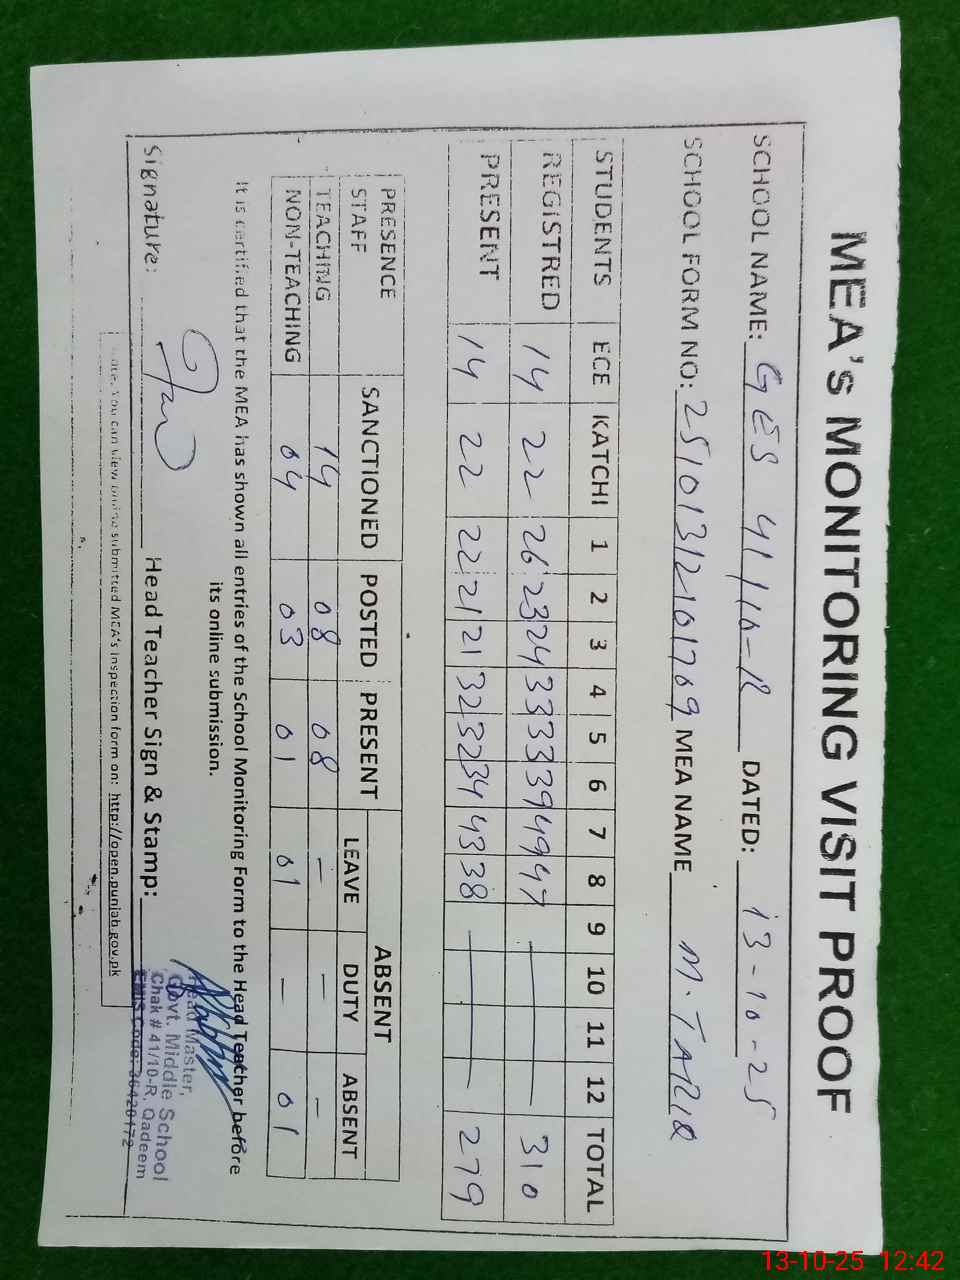 MEA's MONITORING VISIT PROOF
SCHOOL NAME: GES 41/10-R DATED: 13-10-25
SCHOOL FORM NO: 25101312101709 MEA NAME M. TARIQ
STUDENTS ECE KATCHI 1 2 3 4 5 6 7 8 9 10 11 12 TOTAL
REGISTRED 14 22 26 23 24 33 33 39 49 47 — 310
PRESENT 14 22 22 21 21 32 32 34 43 38 — 279
PRESENCE SANCTIONED POSTED PRESENT ABSENT
STAFF LEAVE DUTY ABSENT
TEACHING 14 08 08 — — —
NOM-TEACHING 04 03 01 01 — 01
It is certified that the MEA has shown all entries of the School Monitoring Form to the Head Teacher before
its online submission.
Signature: Head Teacher Sign & Stamp:
Head Master,
Govt. Middle School
Chak # 41/10-R, Qadeem
EMIS Code: 36420172
Note. You can view online submitted MEA's Inspection form on: http://open.punjab.gov.pk
13-10-25 12:42